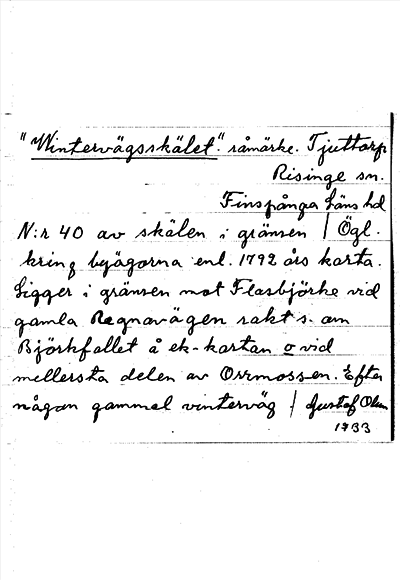 "Wintervägsskälet". råmärke. Tjuttorp
Risinge sn.
Finspånga Läns hd
N:r 40 av skälen i gränsen | Ögl.
kring byägorna enl. 1792 års karta.
Ligger i gränsen mot Flasbjörke vid
gamla Regnavägen rakt s. om
Björkfallet å ek-kartan o vid
mellersta delen av Orrmossen. Efter
någon gammal vinterväg / Gustaf
1933